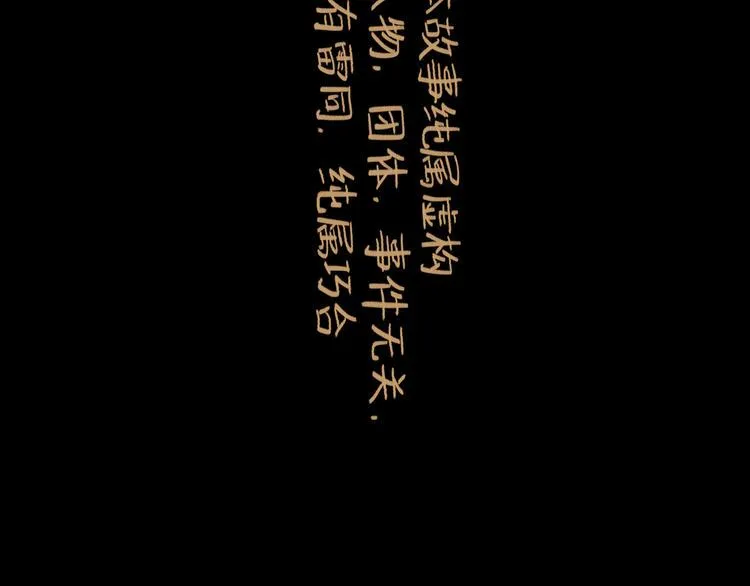 本故事纯属虚构
人物,团体,事件无关,
有雷同,纯属巧合